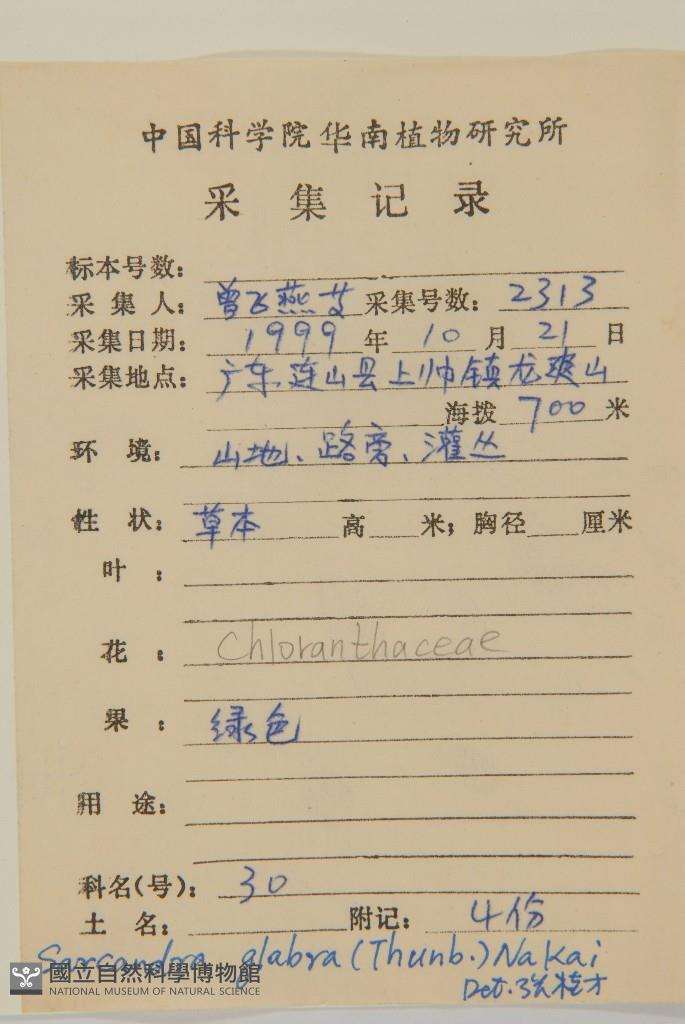 中国科学院华南植物研究所
采集记录
标本号数：
采集人：曾飞燕等 采集号数：2313
采集日期：1999年10月21日
采集地点：广东连山县上帅镇龙爽山
海拨 700 米
环境：山地、路旁、灌丛
性状：草本 高 米；胸径 厘米
叶：
花：Chloranthaceae
果：绿色
用途：
科名(号)：30
土名： 附记：4份
Sarcandra glabra (Thunb.) Nakai
Det. 张桂才
國立自然科學博物館
NATIONAL MUSEUM OF NATURAL SCIENCE